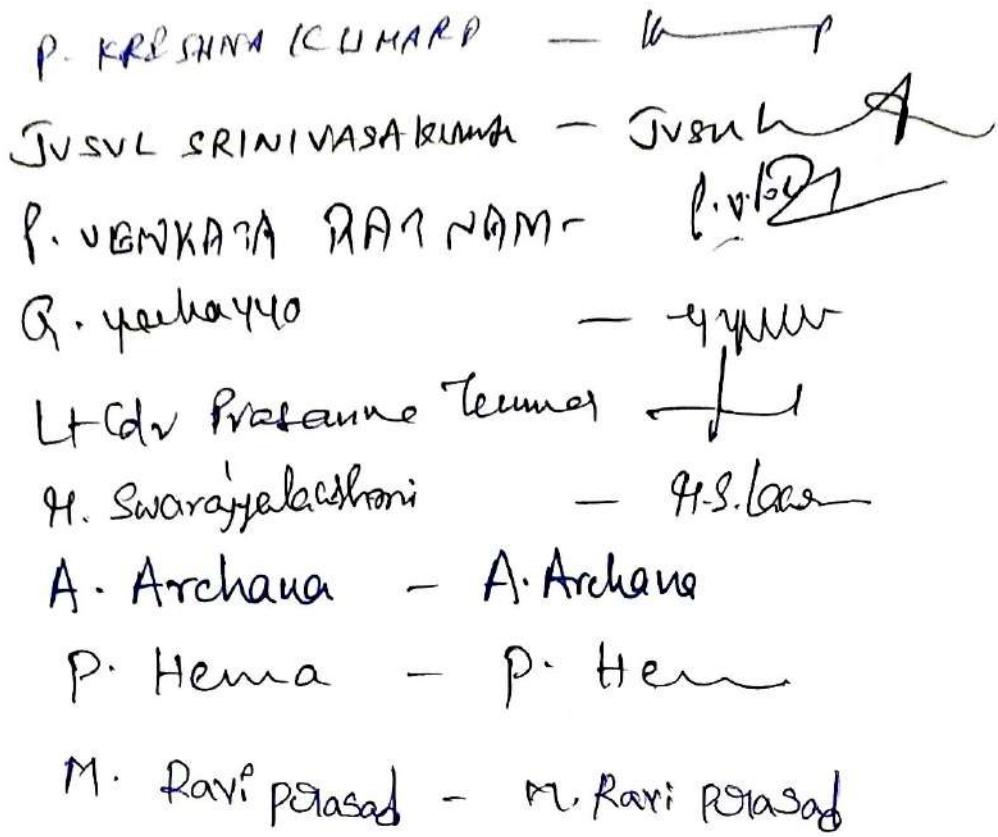 P. KRISHNA KUMARD —
JVSVL SRINIVASA KUMAR — Jvsuh
P. VENKATA RATNAM -
G. yeehayyo —
Lt Cdr Prasanne Kumar
H. Swarajyalakshmi — H.S. Laxm
A. Archana - A. Archana
P. Hema - P. Hem
M. Ravi prasad - M. Ravi prasad